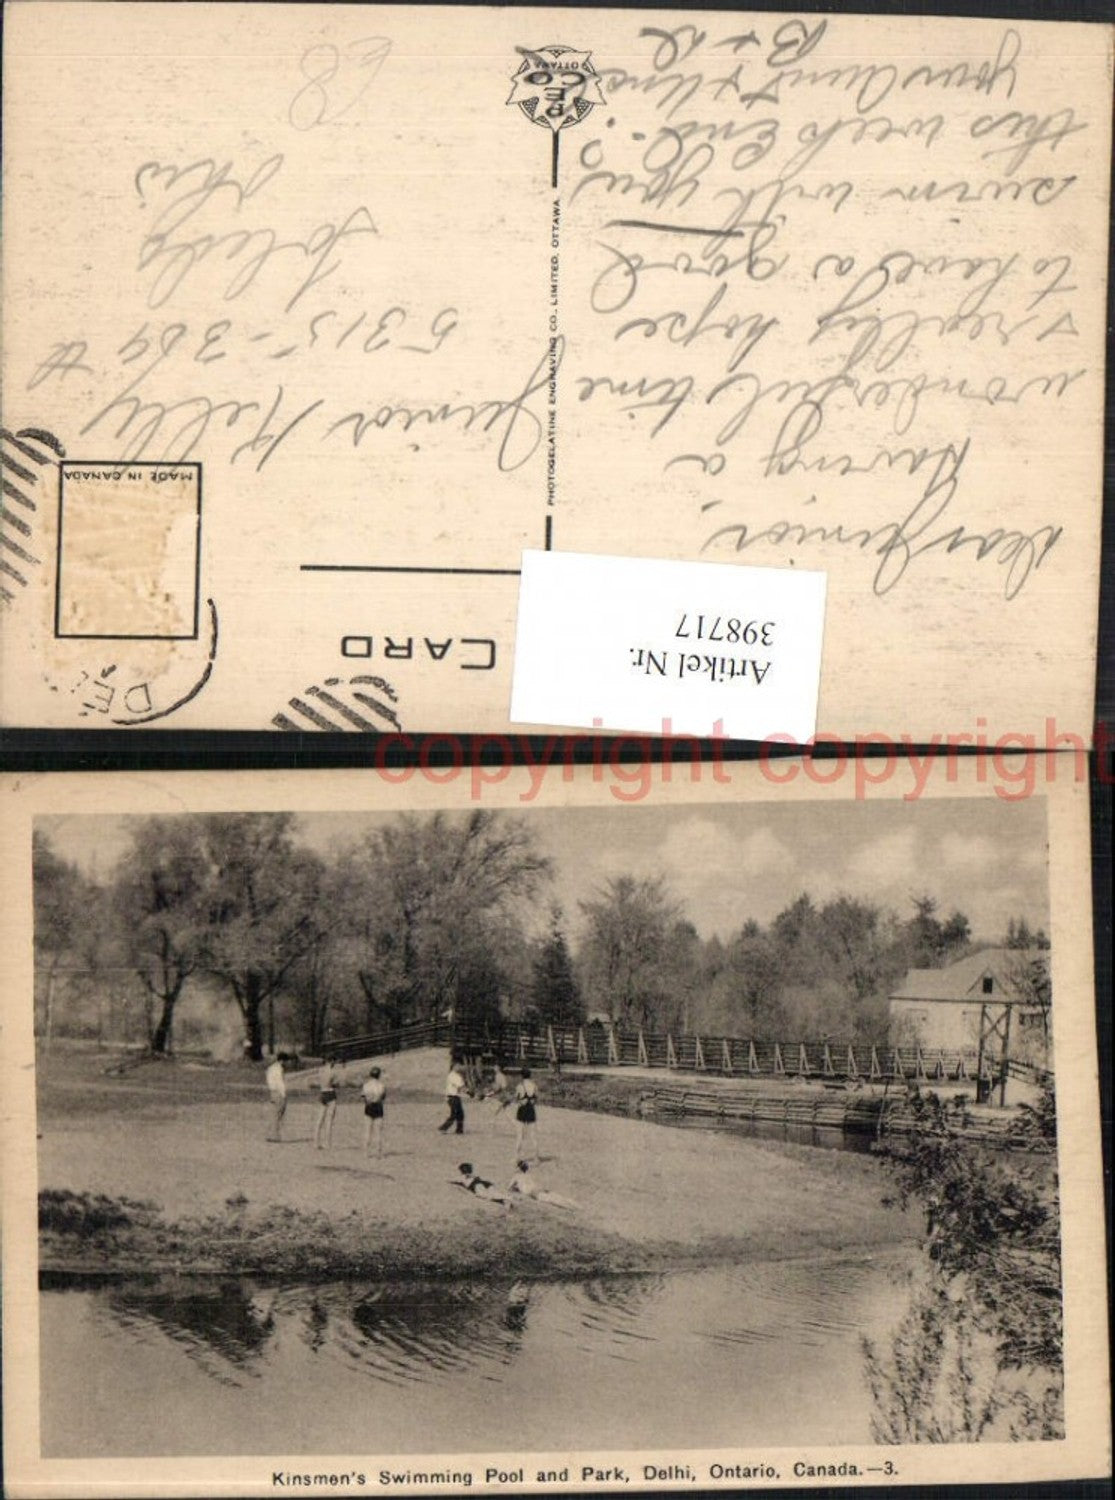 CARD
Artikel Nr.
398717
MADE IN CANADA
DE
Dear Junior,
Having a
wonderful time
& really hope
to have a good
swim with you
this week end.
your Aunt & Uncle
B + 
Junior Kelly
5315 - 369 St
Toledo
Ohio
PHOTOGELATINE ENGRAVING CO., LIMITED, OTTAWA
PECO
OTTAWA
copyright copyright
Kinsmen's Swimming Pool and Park, Delhi, Ontario, Canada.—3.